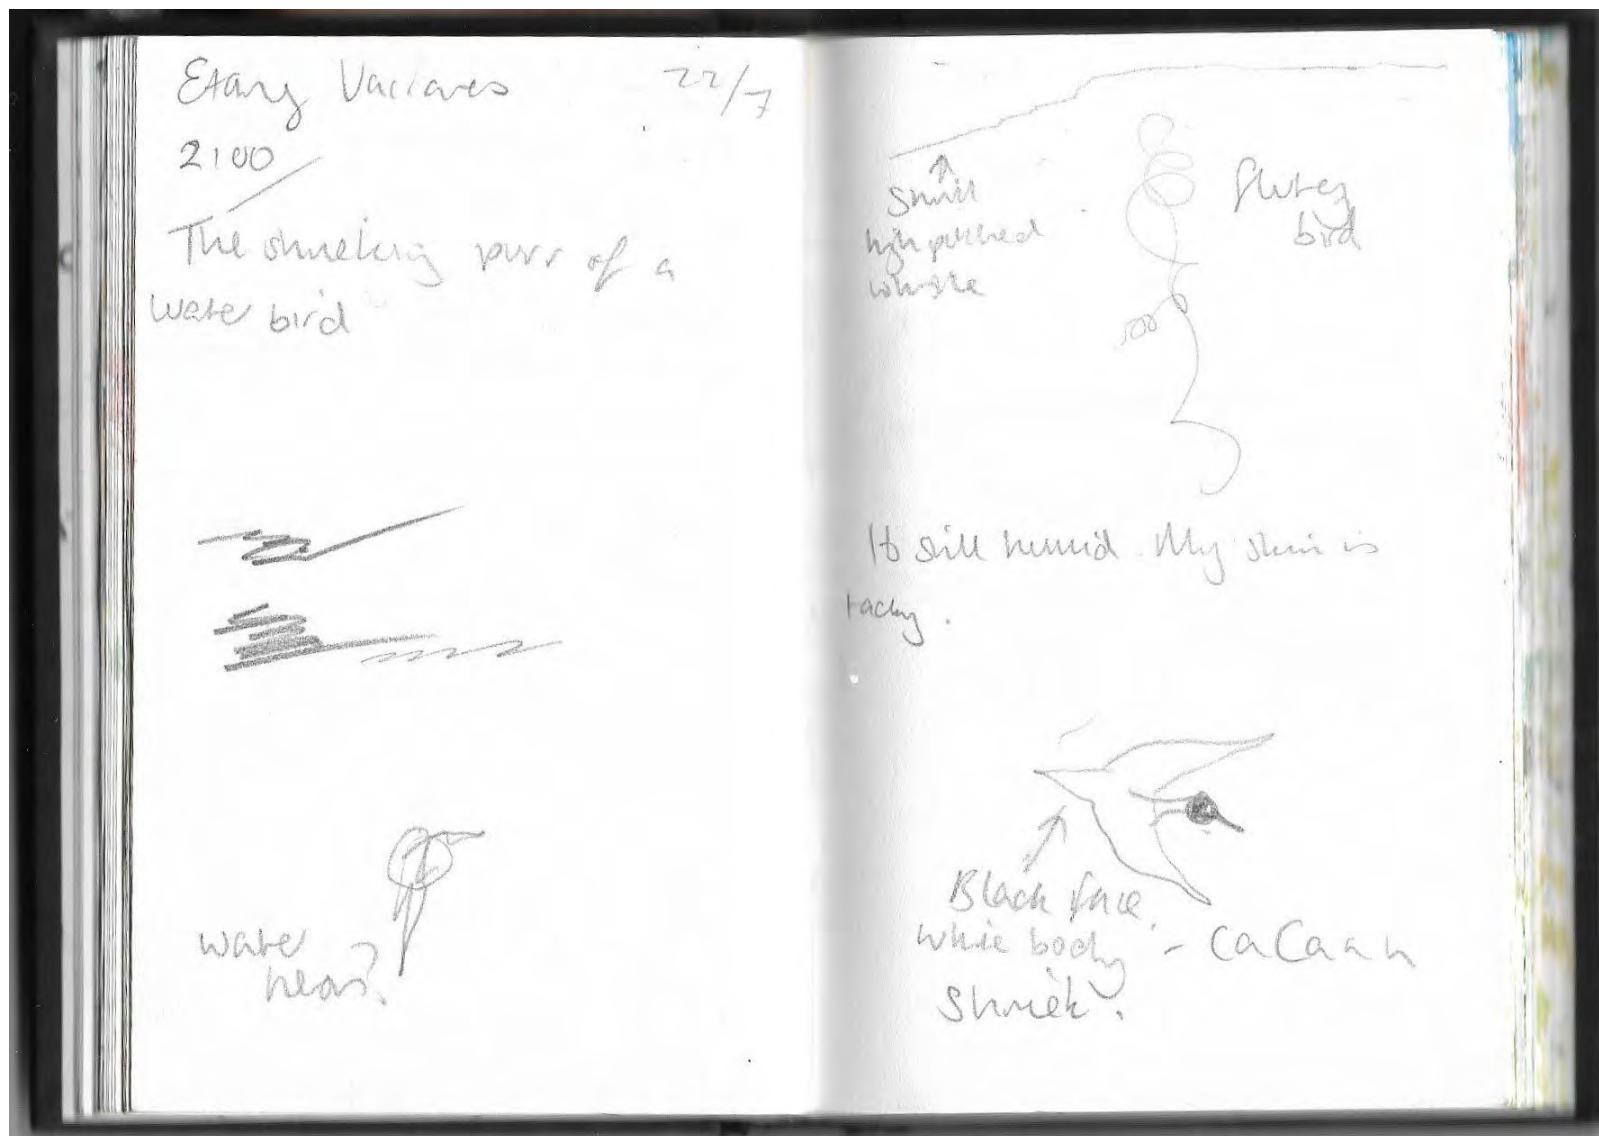 Etang Vaccares
22/7
2100
The shrieking purr of a
water bird
water
heron?
Shrill
high pitched
whistle
flutey
bird
It still humid. My skin is
tacky.
Black face
white body - CaCaah
Shriek.